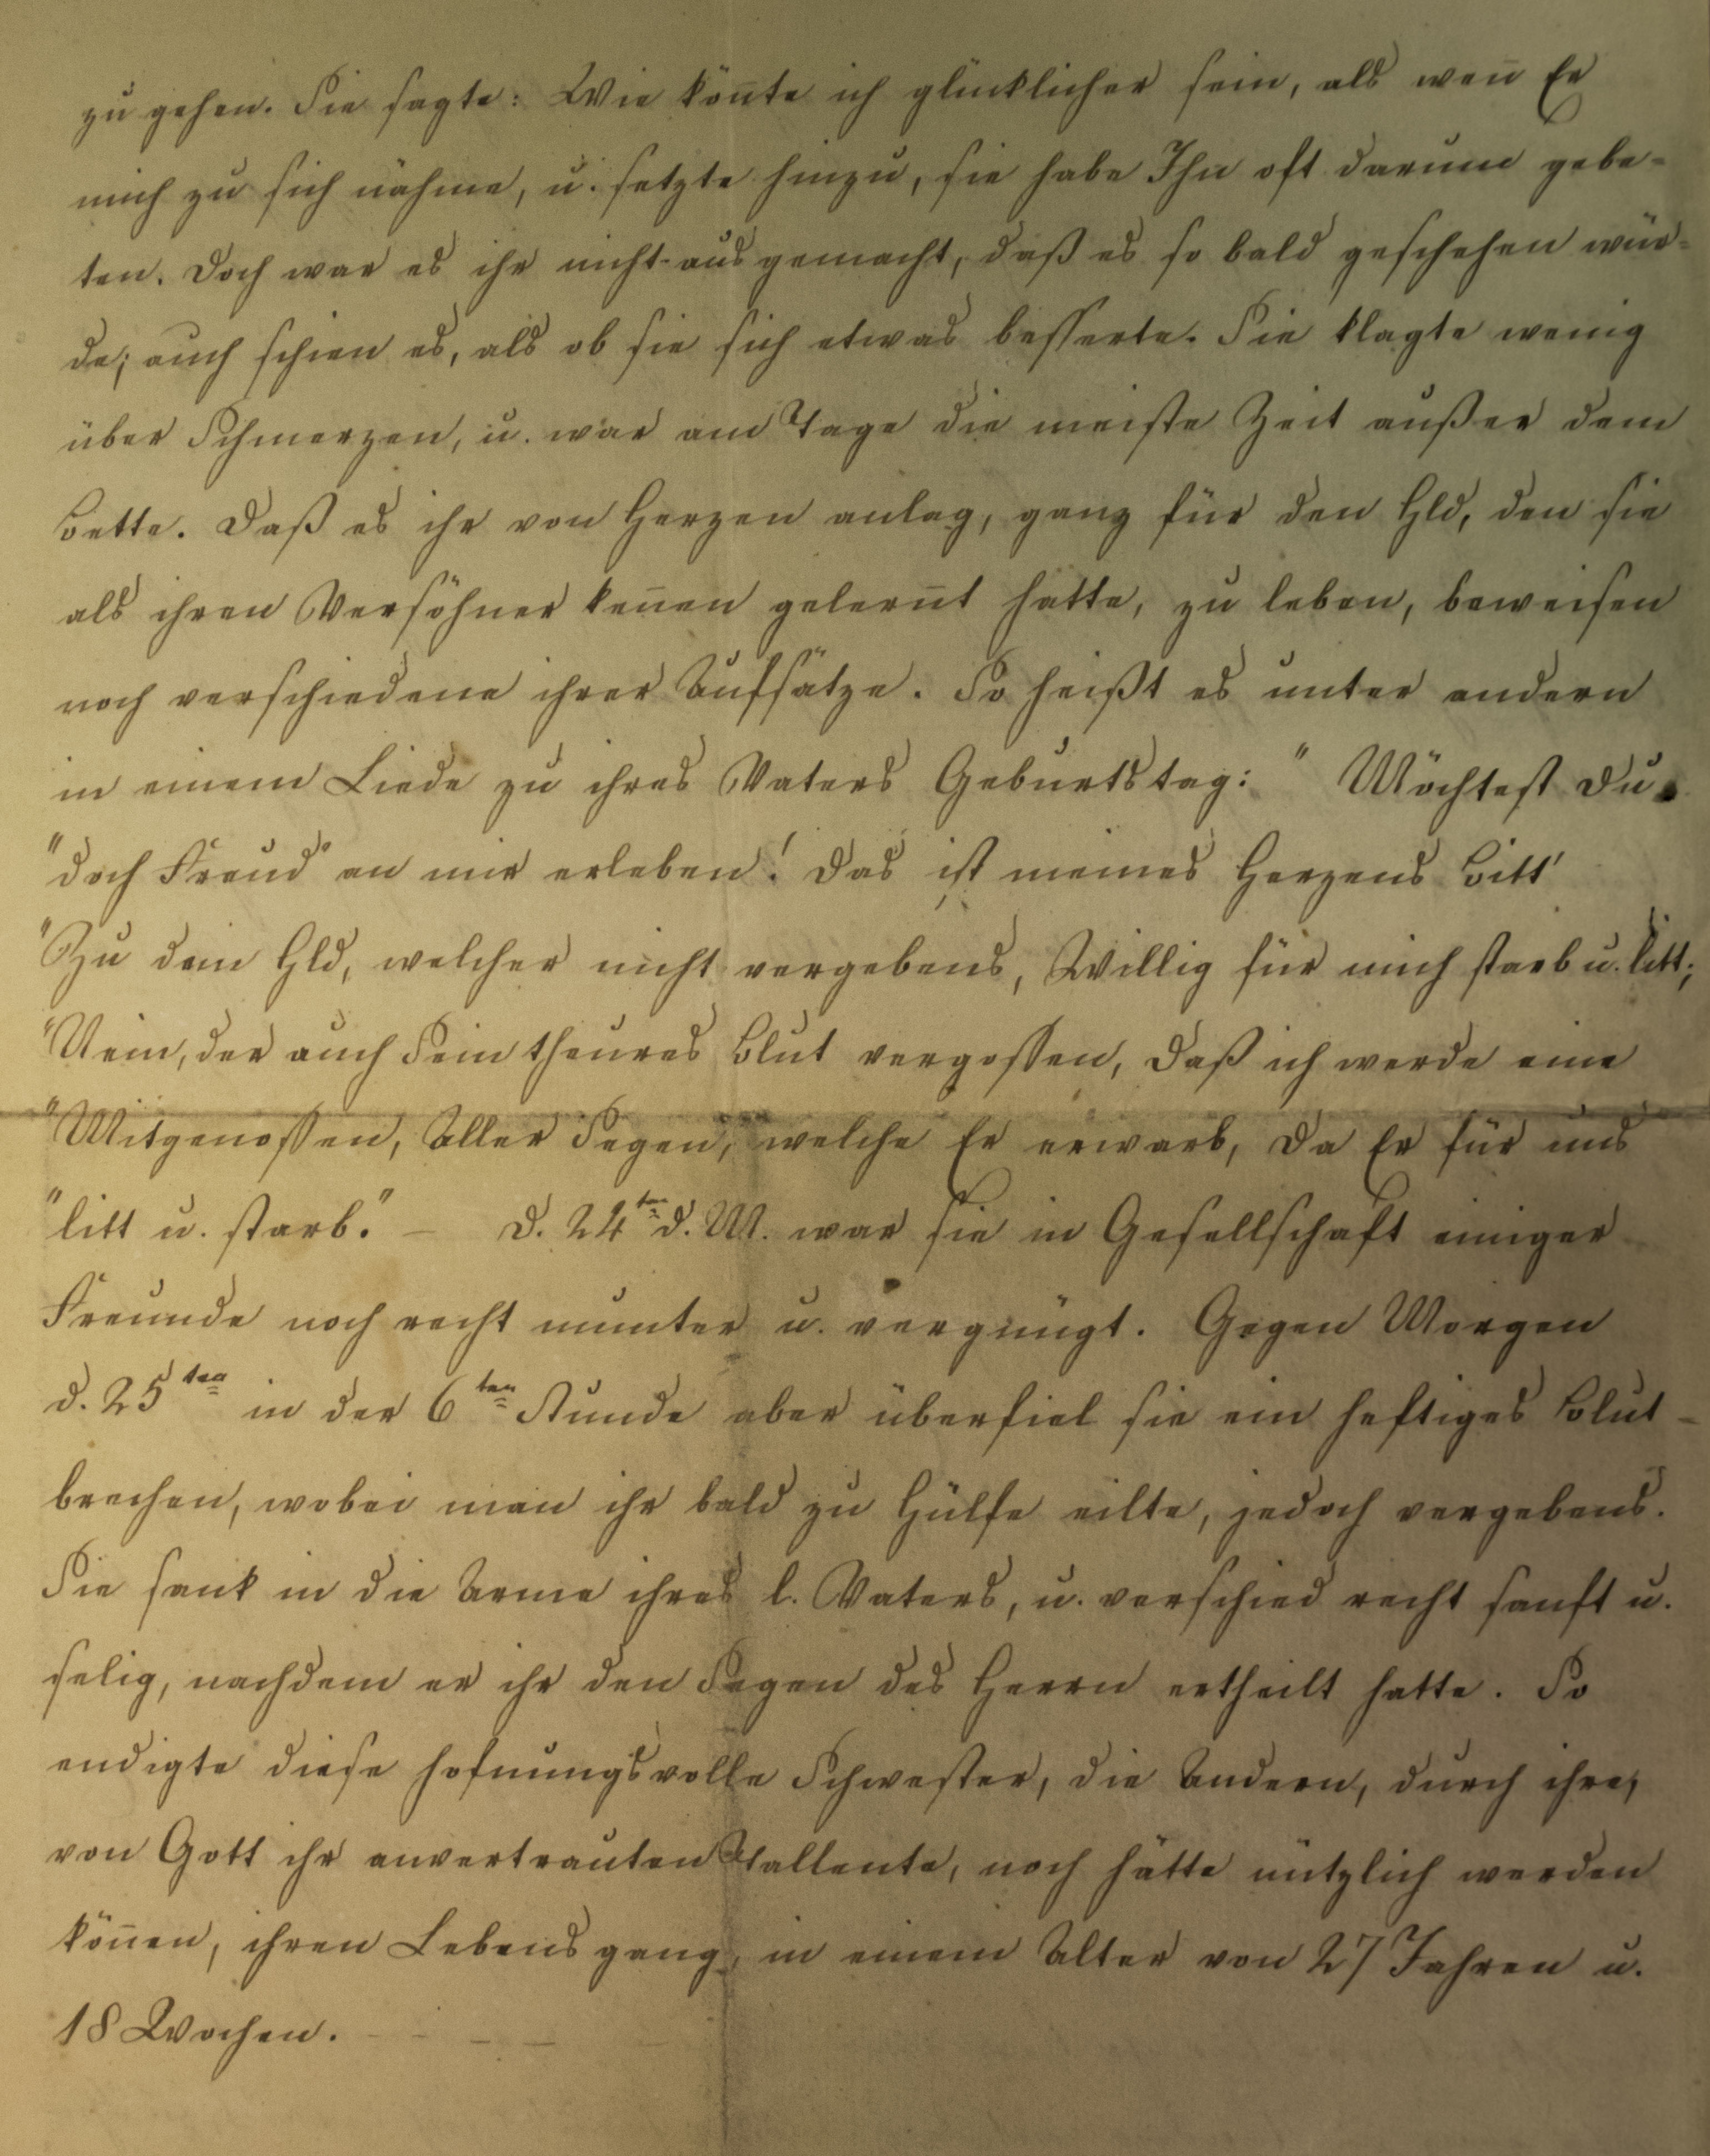 zu gehen. Sie sagte: Wie kön̄te ich glücklicher sein, als wen̄ Er
mich zu sich nähme, u. setzte hinzu, sie habe Ihn oft darum gebe-
ten. Doch war es ihr nicht ausgemacht, daß es so bald geschehen wür-
de; auch schien es, als ob sie sich etwas besserte. Sie klagte wenig
über Schmerzen, u. war am Tage die meiste Zeit außer dem
Bette. Daß es ihr von Herzen anlag, ganz für den Hld, den sie
als ihren Versöhner ken̄en gelern̄t hatte, zu leben, beweisen
noch verschiedene ihrer Aufsätze. So heißt es unter andern
in einem Liede zu ihres Vaters Geburtstag: " Möchtest Du
"doch Freud' an mir erleben! Das ist meines Herzens Bitt'
"Zu dem Hld, welcher nicht vergebens, Willig für mich starb u. litt;
"Nein, der auch Sein theures Blut vergossen, Daß ich werde eine
"Mitgenossen, Aller Segen, welche Er erwarb, Da Er für uns
"litt u. starb." – D. 24ten d. M. war sie in Gesellschaft einiger
Freunde noch recht munter u. vergnügt. Gegen Morgen
d. 25ten in der 6ten Stunde aber überfiel sie ein heftiges Blut-
brechen, wobei man ihr bald zu Hülfe eilte, jedoch vergebens.
Sie sank in die Arme ihres l. Vaters, u. verschied recht sanft u.
selig, nachdem er ihr den Segen des Herrn ertheilt hatte. So
endigte diese hofnungsvolle Schwester, die Andern, durch ihre,
von Gott ihr anvertrauten Tallente, noch hätte nützlich werden
kön̄en, ihren Lebensgang, in einem Alter von 27 Jahren u.
18 Wochen. – – – –